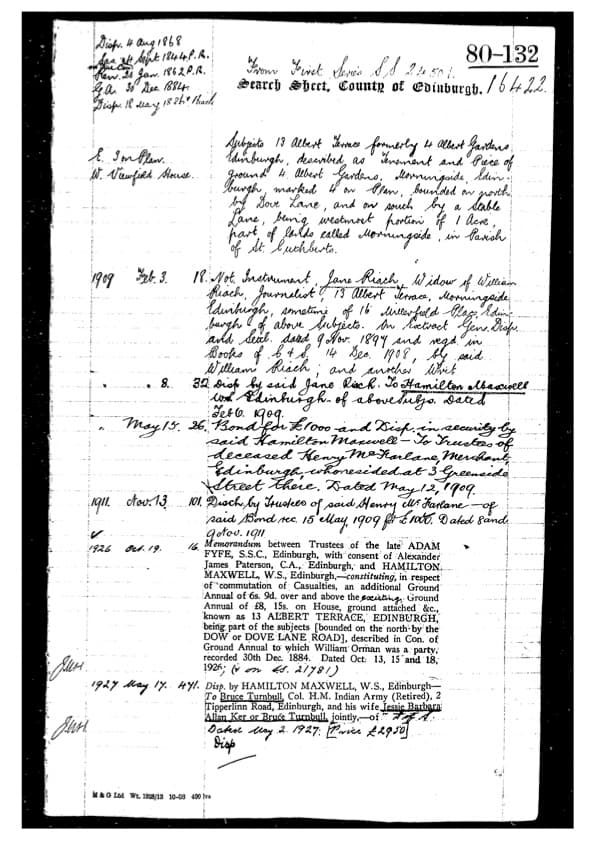 Disp. 4 Aug 1868
Sept 1844 P.R.
Jan. 1862 P.R.
G.A. 30 Dec 1884.
Disp. 18 May 18
80-132
From First Series S.S 24501.
Search Sheet, County of Edinburgh. 16422.
Subjects 13 Albert Terrace formerly 4 Albert Gardens
Edinburgh, described as Tenement and Piece of
ground 4 Albert Gardens, Morningside, Edin-
burgh, marked 4 on Plan, bounded on north
by Dove Lane, and on south by a Stable
Lane, being westmost portion of 1 Acre
part of lands called Morningside, in Parish
of St. Cuthberts.
E. Im Plew.
W. Viewfield House.
1909 Feb. 3. 18. Not. Instrument Jane Riach, Widow of William
Riach, Journalist, 13 Albert Terrace, Morningside
Edinburgh, sometime of 16 Millerfield Place, Edin-
burgh of above Subjects. On Extract Gen. Disp.
and Settl. dated 9 Nov. 1897 and regd. in
Books of C & S, 14 Dec. 1908, by said
William Riach; and another Writ
" " 8. 32 Disp by said Jane Riach. To Hamilton Maxwell
Edinburgh of above subjs. Dated
Feb 6. 1909.
" May 15. 26. Bond for £1000 and Disp. in security by
said Hamilton Maxwell – To Trustees of
deceased Henry McFarlane, Merchant,
Edinburgh, who resided at 3 Greenside
Street there. Dated May 12, 1909.
1911. Nov. 13. 101. Disch. by Trustees of said Henry McFarlane – of
said Bond rec. 15 May, 1909 for £1000. Dated 8 and
9 Nov. 1911
1926 Oct. 19. 16. Memorandum between Trustees of the late ADAM
FYFE, S.S.C., Edinburgh, with consent of Alexander
James Paterson, C.A., Edinburgh, and HAMILTON
MAXWELL, W.S., Edinburgh,—constituting, in respect
of commutation of Casualties, an additional Ground
Annual of 6s. 9d. over and above the existing Ground
Annual of £8, 15s. on House, ground attached &c.,
known as 13 ALBERT TERRACE, EDINBURGH,
being part of the subjects [bounded on the north by the
DOW or DOVE LANE ROAD], described in Con. of
Ground Annual to which William Orman was a party,
recorded 30th Dec. 1884. Dated Oct. 13, 15 and 18,
1926; (& on 21781)
1927 May 17. 441. Disp. by HAMILTON MAXWELL, W.S., Edinburgh—
To Bruce Turnbull, Col. H.M. Indian Army (Retired), 2
Tipperlinn Road, Edinburgh, and his wife Jessie Barbara
Allan Ker or Bruce Turnbull, jointly,—of
Dated May 2. 1927. [Price £2950]
Disp
M & G Ltd Wt. 1828/13 10-08 400 lvs